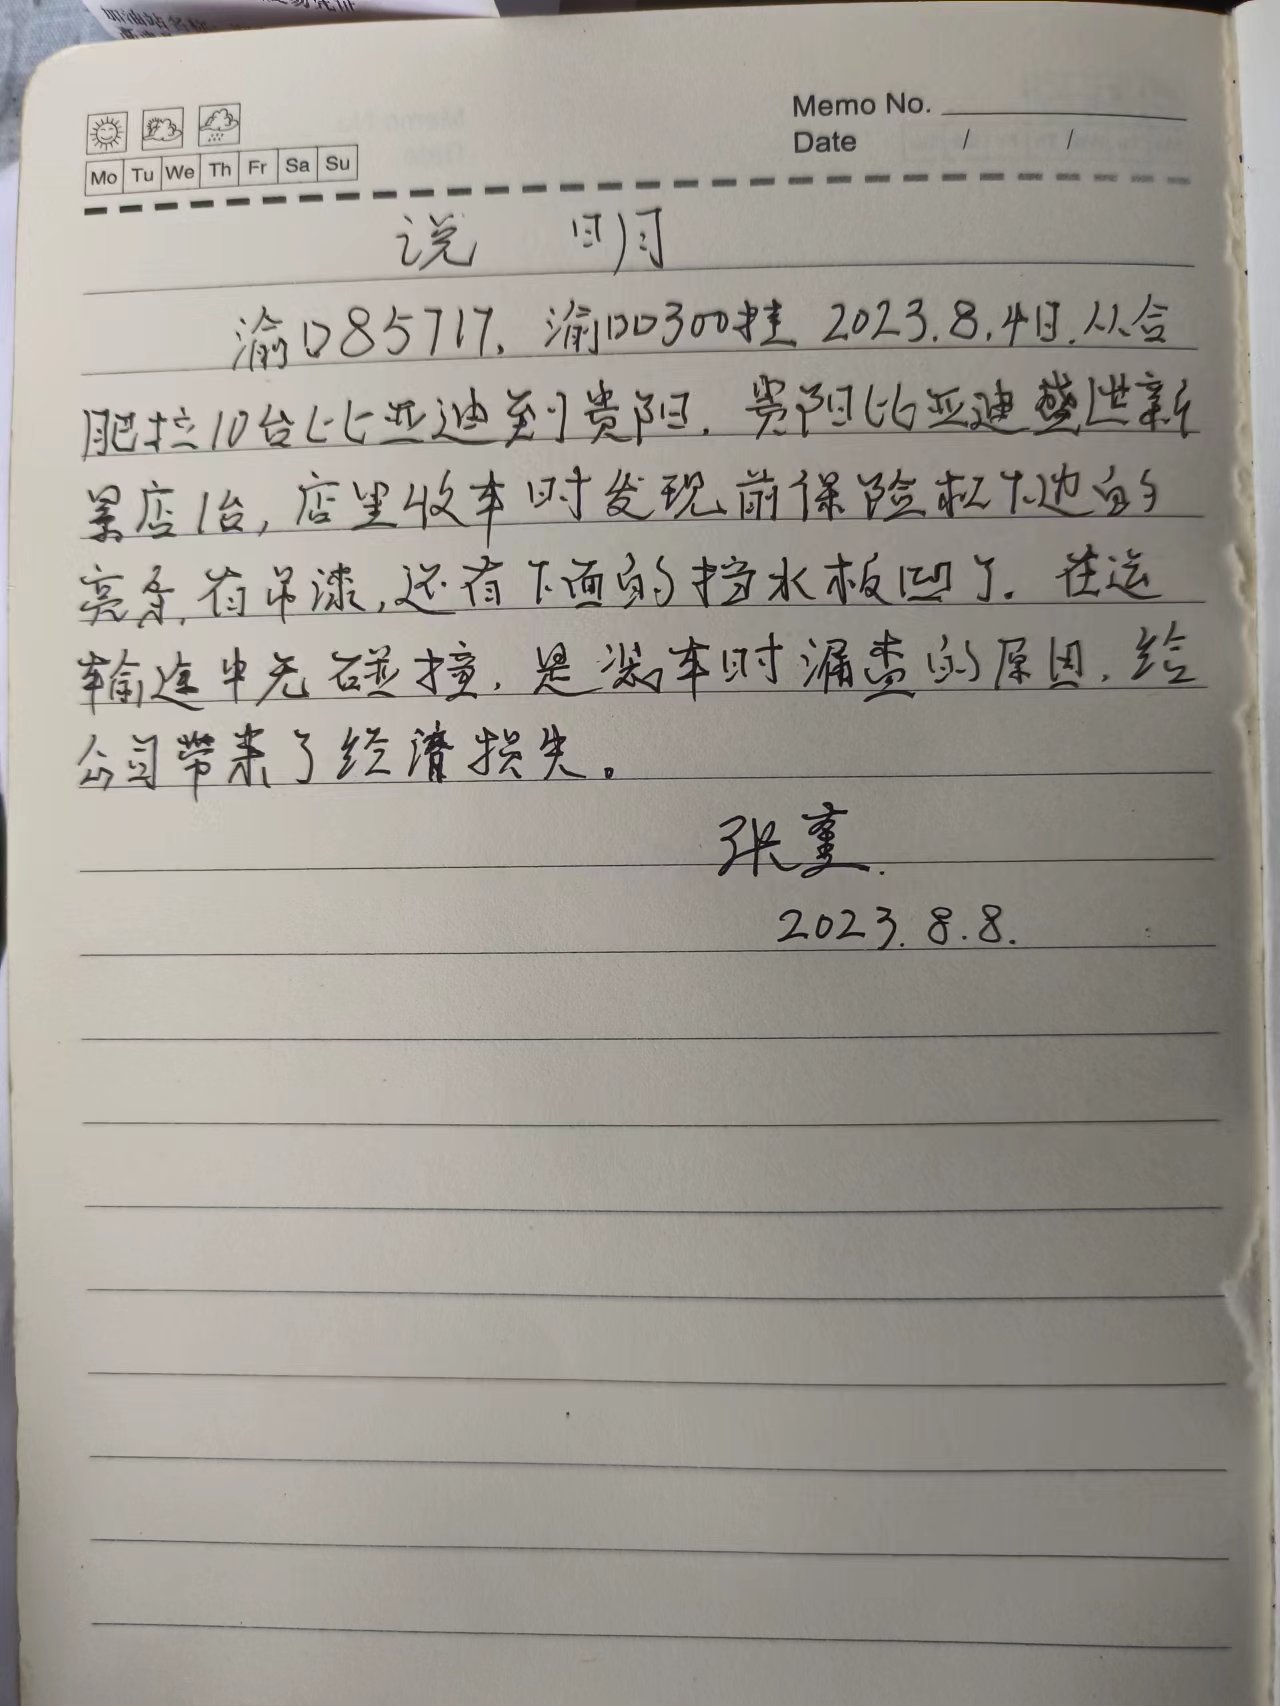 加油站名称
Memo No.
Date / /
Mo Tu We Th Fr Sa Su
说 明
渝D85717、渝DD300挂 2023.8.4日.从合
肥拉10台比亚迪到贵阳.贵阳比亚迪楚进新
景店1台,店里收车时发现前保险杠下边的
亮条.有吊漆,还有下面的挡水板凹了.在运
输途中无碰撞,是装车时漏查的原因.给
公司带来了经济损失。
张
2023.8.8.